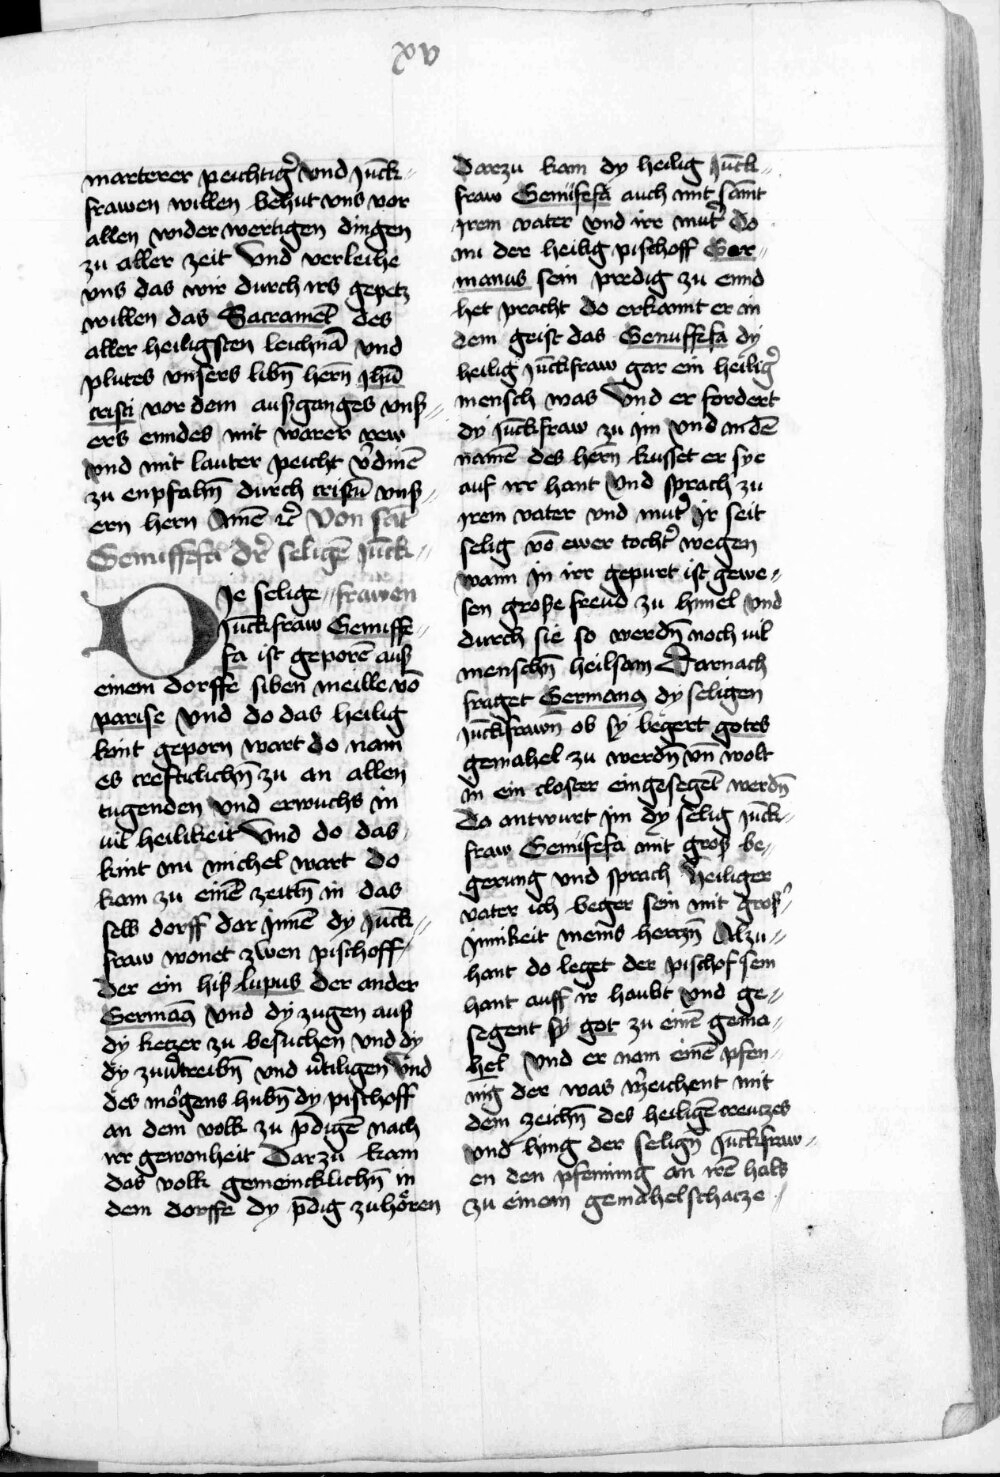 xv
marterer peichtig̉ vnd Juͤck⸗
frawen willen behut vns vor
allen wider wertigen dingen
zu aller zeit Vnd verleihe
vns das wir durch irs gepetz
willen das Sacramēt des
aller heiligsten leichnā vnd
plutes vnsers libn̄ hern̄ Jhū
cristi vor dem außganges vnß⸗
ers enndes mit warer rew
vnd mit lauter peicht v̉dinē
zu enpfahn̄ durch cristū vnß⸗
ern hern Amē ꝛc̄ Von sāt
Genuffefa dr̉ seligē Jūck⸗
Die selige ⸗frawen
Jūckfraw Genuffe⸗
fa ist geporē auß
einem dorffe siben meille vō
parise Vnd do das heilig
kint geporn wart do nam
es creftclichn̄ zu an allen
tugenden vnd erwuchs in
vil heilikeit Vnd do das
kint nu michel wart do
kam zu einē zeitn̄ in das
selb dorff dar Jnnē dy Jūck⸗
fraw wonet zwen pischoff⸗
der ein hiß lupus der ander
Germanꝰ vnd dy zugen auß
dy ketzer zu besuchen vnd dy
dy zuv̉treibn̄ vnd v̉tiligen Vnd
des morgens hubn̄ dy pischoff
an dem volk zu p̄digē nach
irr gewonheit Darzu kam
das volk gemeincklichn̄ in
dem dorffe dy p̄dig zuhören
Darzu kam dy heilig Jūck⸗
fraw Genufefa auch mit sāmt
irem vater vnd irr mut̉ Do
nu der heilig pischoff Ger⸗
manus sein predig zu ennd
het pracht do erkannt er in
dem geist das Genuffefa dy
heilig Jūckfraw gar ein heilig̉
mensch was Vnd er fordert
dy Jūckfraw zu im vnd in dē
namē des hern̄ kusset er sye
auf irr hant Vnd sprach zu
irem vater vnd mut̉ Ir seit
selig vō ewer tocht̉ wegen
wann in irr gepurt ist gewe⸗
sen große freud zu himel Vnd
durch sie so werdn̄ noch vil
menschn̄ heilsam Darnach
fraget Germanꝰ dy seligen
Jūckfrawn̄ ob sy begert gotes
gemahel zu werdn̄ vn̄ wolt
in ein closter eingesegēt werdn̄
Da antwurt im dy selig Jūck⸗
fraw Genufefa mit groß be⸗
gerung vnd sprach Heiliger
vater ich beger sein mit groß̉⸗
innikeit meins herczn̄ Alzu⸗
hant do leget der pischof sein
hant auff ir haubt Vnd ge⸗
segent sy got zu einē gema⸗
hel Vnd er nam einē pfen⸗
nig der was v̉zeichent mit
dem zeichn̄ des heiligē creutzes
vnd hing der selign̄ Jūckfraw⸗
en den pfenning an irē hals
zu einem gemahelschatze